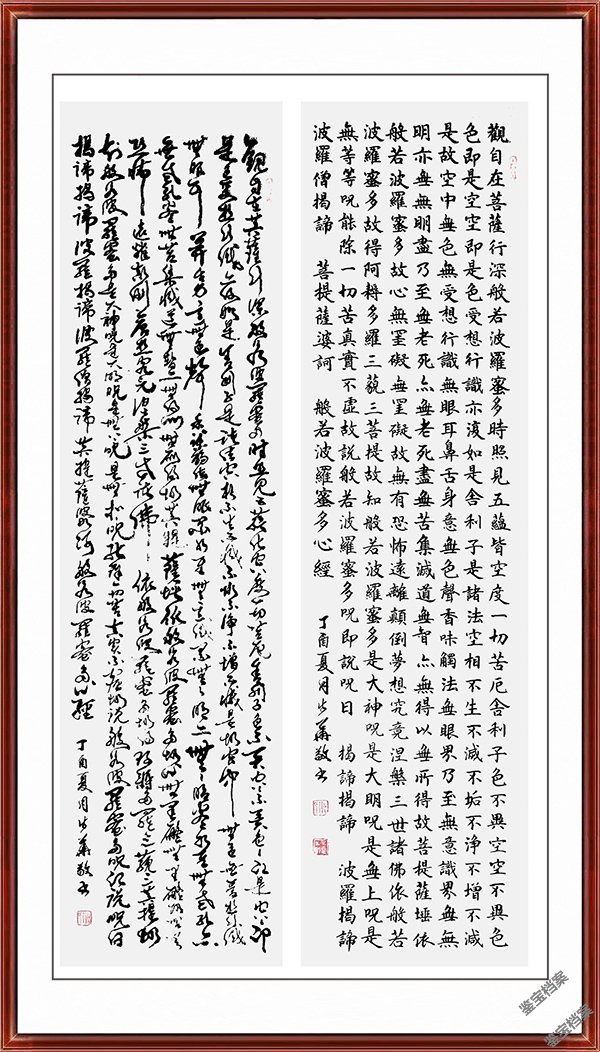 觀自在菩薩行深般若波羅蜜多時照見五蘊皆空度一切苦厄舍利子色不異空空不異色
色即是空空即是色受想行識亦復如是舍利子是諸法空相不生不滅不垢不淨不增不減
是故空中無色無受想行識無眼耳鼻舌身意無色聲香味觸法無眼界乃至無意識界無無
明亦無無明盡乃至無老死亦無老死盡無苦集滅道無智亦無得以無所得故菩提薩埵依
般若波羅蜜多故心無罣礙無罣礙故無有恐怖遠離顛倒夢想究竟涅槃三世諸佛依般若
波羅蜜多故得阿耨多羅三藐三菩提故知般若波羅蜜多是大神呪是大明呪是無上呪是
無等等呪能除一切苦真實不虛故說般若波羅蜜多呪即說呪曰 揭諦揭諦 波羅揭諦
波羅僧揭諦 菩提薩婆訶 般若波羅蜜多心經
丁酉夏月 華敬书
觀自在菩薩行深般若波羅蜜多時照見五蘊皆空度一切苦厄舍利子色不異空空不異色色即是空空即
是色受想行識亦復如是舍利子是諸法空相不生不滅不垢不淨不增不減是故空中無色無受想行識
無眼耳鼻舌身意無色聲香味觸法無眼界乃至無意識界無無明亦無無明盡乃至無老死亦
無老死盡無苦集滅道無智亦無得以無所得故菩提薩埵依般若波羅蜜多故心無罣礙無罣礙故無有
恐怖遠離顛倒夢想究竟涅槃三世諸佛依般若波羅蜜多故得阿耨多羅三藐三菩提故
知般若波羅蜜多是大神呪是大明呪是無上呪是無等等呪能除一切苦真實不虛故說般若波羅蜜多呪即說呪曰
揭諦揭諦波羅揭諦波羅僧揭諦菩提薩婆訶般若波羅蜜多心經
丁酉夏月 華敬书
鉴宝档案
鉴宝档案